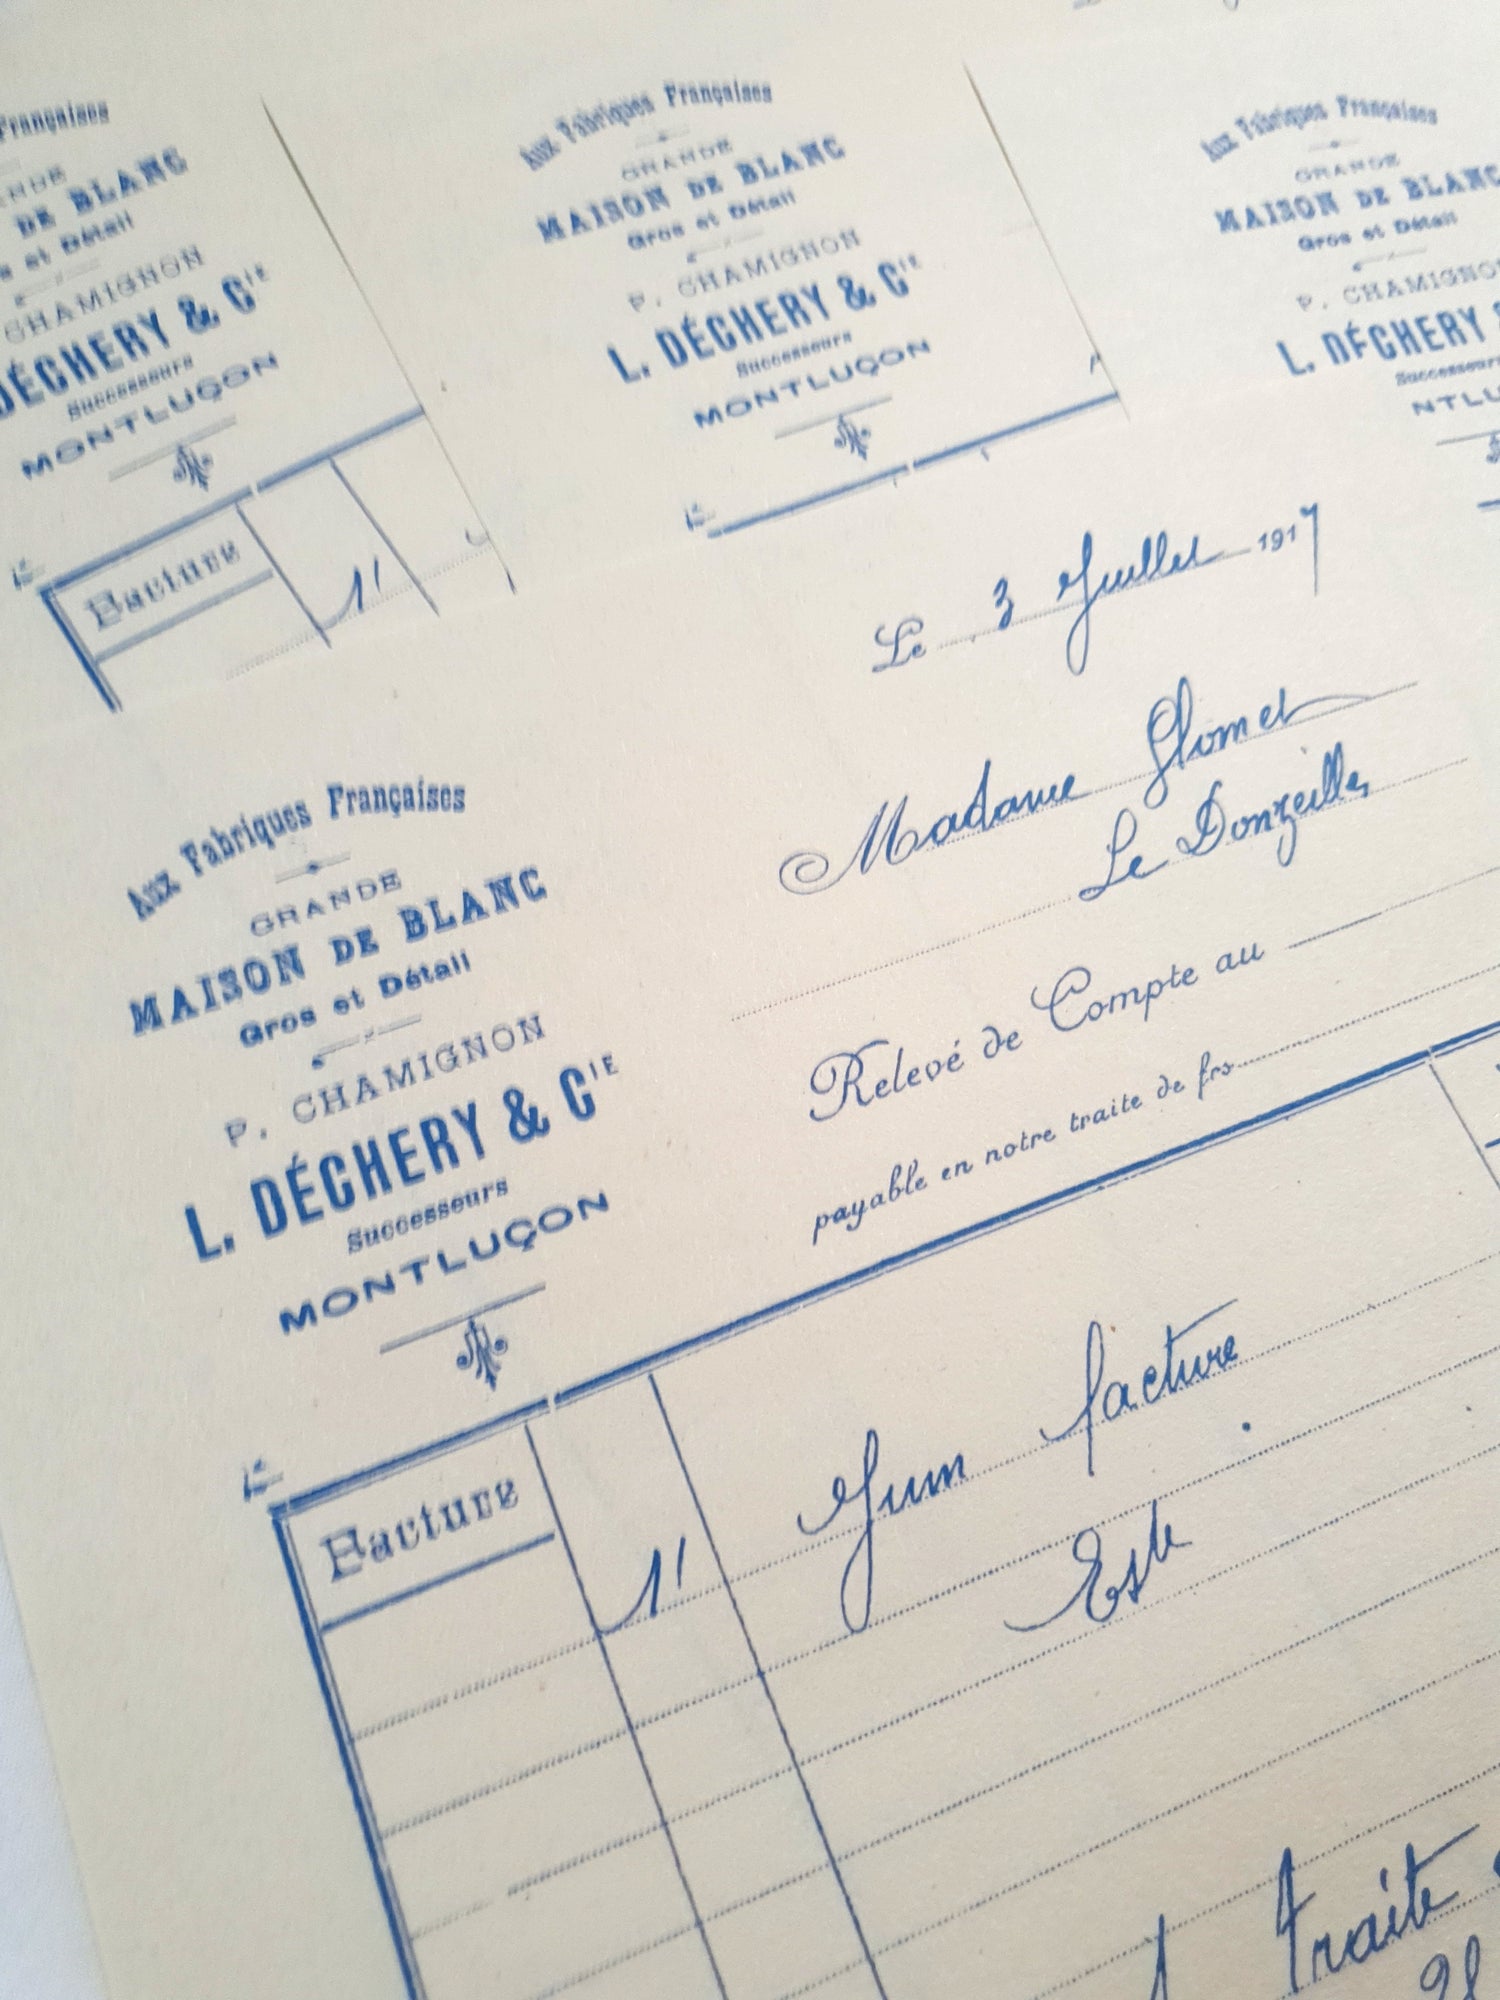 Françaises
DE BLANC
et Détail
CHAMIGNON
DÉCHERY & Cⁱᴱ
Successeurs
MONTLUÇON
Facture
1'
Aux Fabriques Françaises
GRANDE
MAISON DE BLANC
Gros et Détail
P. CHAMIGNON
L. DÉCHERY & Cⁱᴱ
Successeurs
MONTLUÇON
Aux Fabriques Françaises
GRANDE
MAISON DE BLANC
Gros et Détail
P. CHAMIGNON
L. DÉCHERY
Successeurs
NTLU
Le 3 Juillet 1917
Madame Glomet
Le Donzeilles
Relevé de Compte au
payable en notre traite de frs
Aux Fabriques Françaises
GRANDE
MAISON DE BLANC
Gros et Détail
P. CHAMIGNON
L. DÉCHERY & Cⁱᴱ
Successeurs
MONTLUÇON
Facture
1' Juin facture
Este
traite